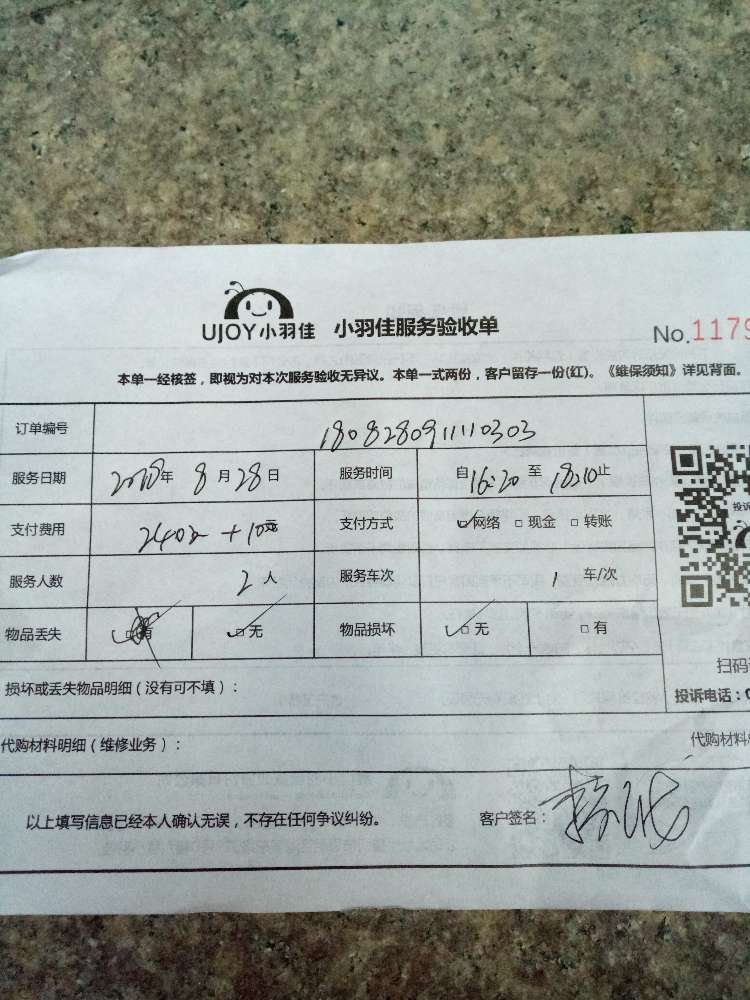 UJOY小羽佳 小羽佳服务验收单 No.1179
本单一经核签，即视为对本次服务验收无异议。本单一式两份，客户留存一份(红)。《维保须知》详见背面。
订单编号 1808280911110303
服务日期 2018年 8月28日 服务时间 自16:20至18:10止
支付费用 240元+10元 支付方式 ☑网络 □现金 □转账
服务人数 2人 服务车次 1 车/次
物品丢失 □有 ☑无 物品损坏 ☑无 □有
投诉
扫码
损坏或丢失物品明细（没有可不填）：
投诉电话：0
代购材料明细（维修业务）： 代购材料
以上填写信息已经本人确认无误，不存在任何争议纠纷。 客户签名：